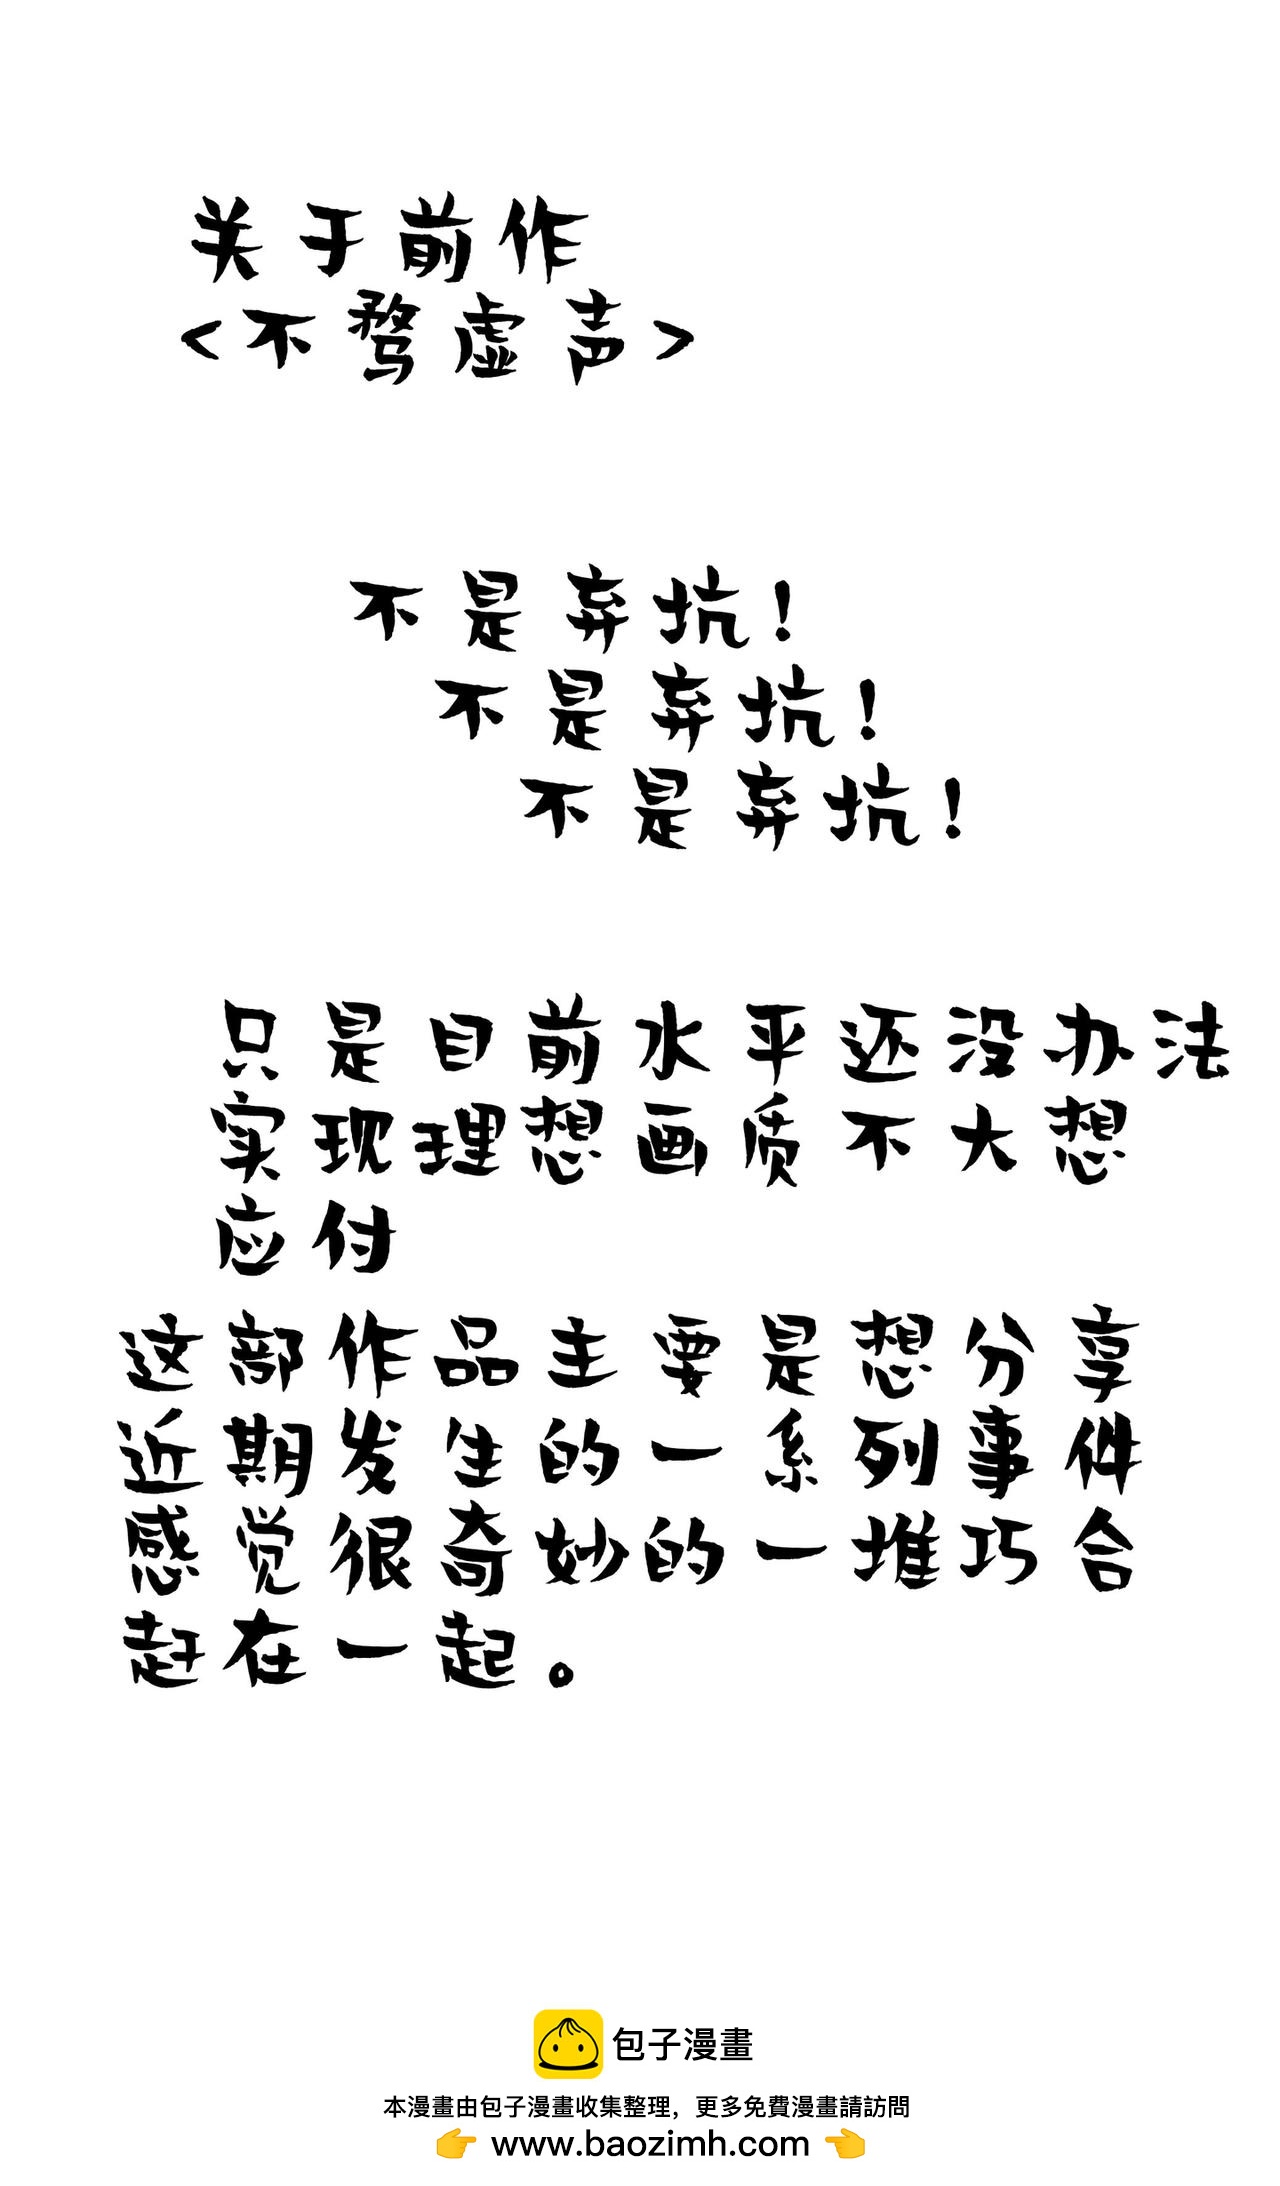 关于前作
<不骛虚声>
不是弃坑！
不是弃坑！
不是弃坑！
只是目前水平还没办法
实现理想画质不大想
应付
这部作品主要是想分享
近期发生的一系列事件
感觉很奇妙的一堆巧合
赶在一起。
包子漫畫
本漫畫由包子漫畫收集整理，更多免費漫畫請訪問
👉 www.baozimh.com 👈